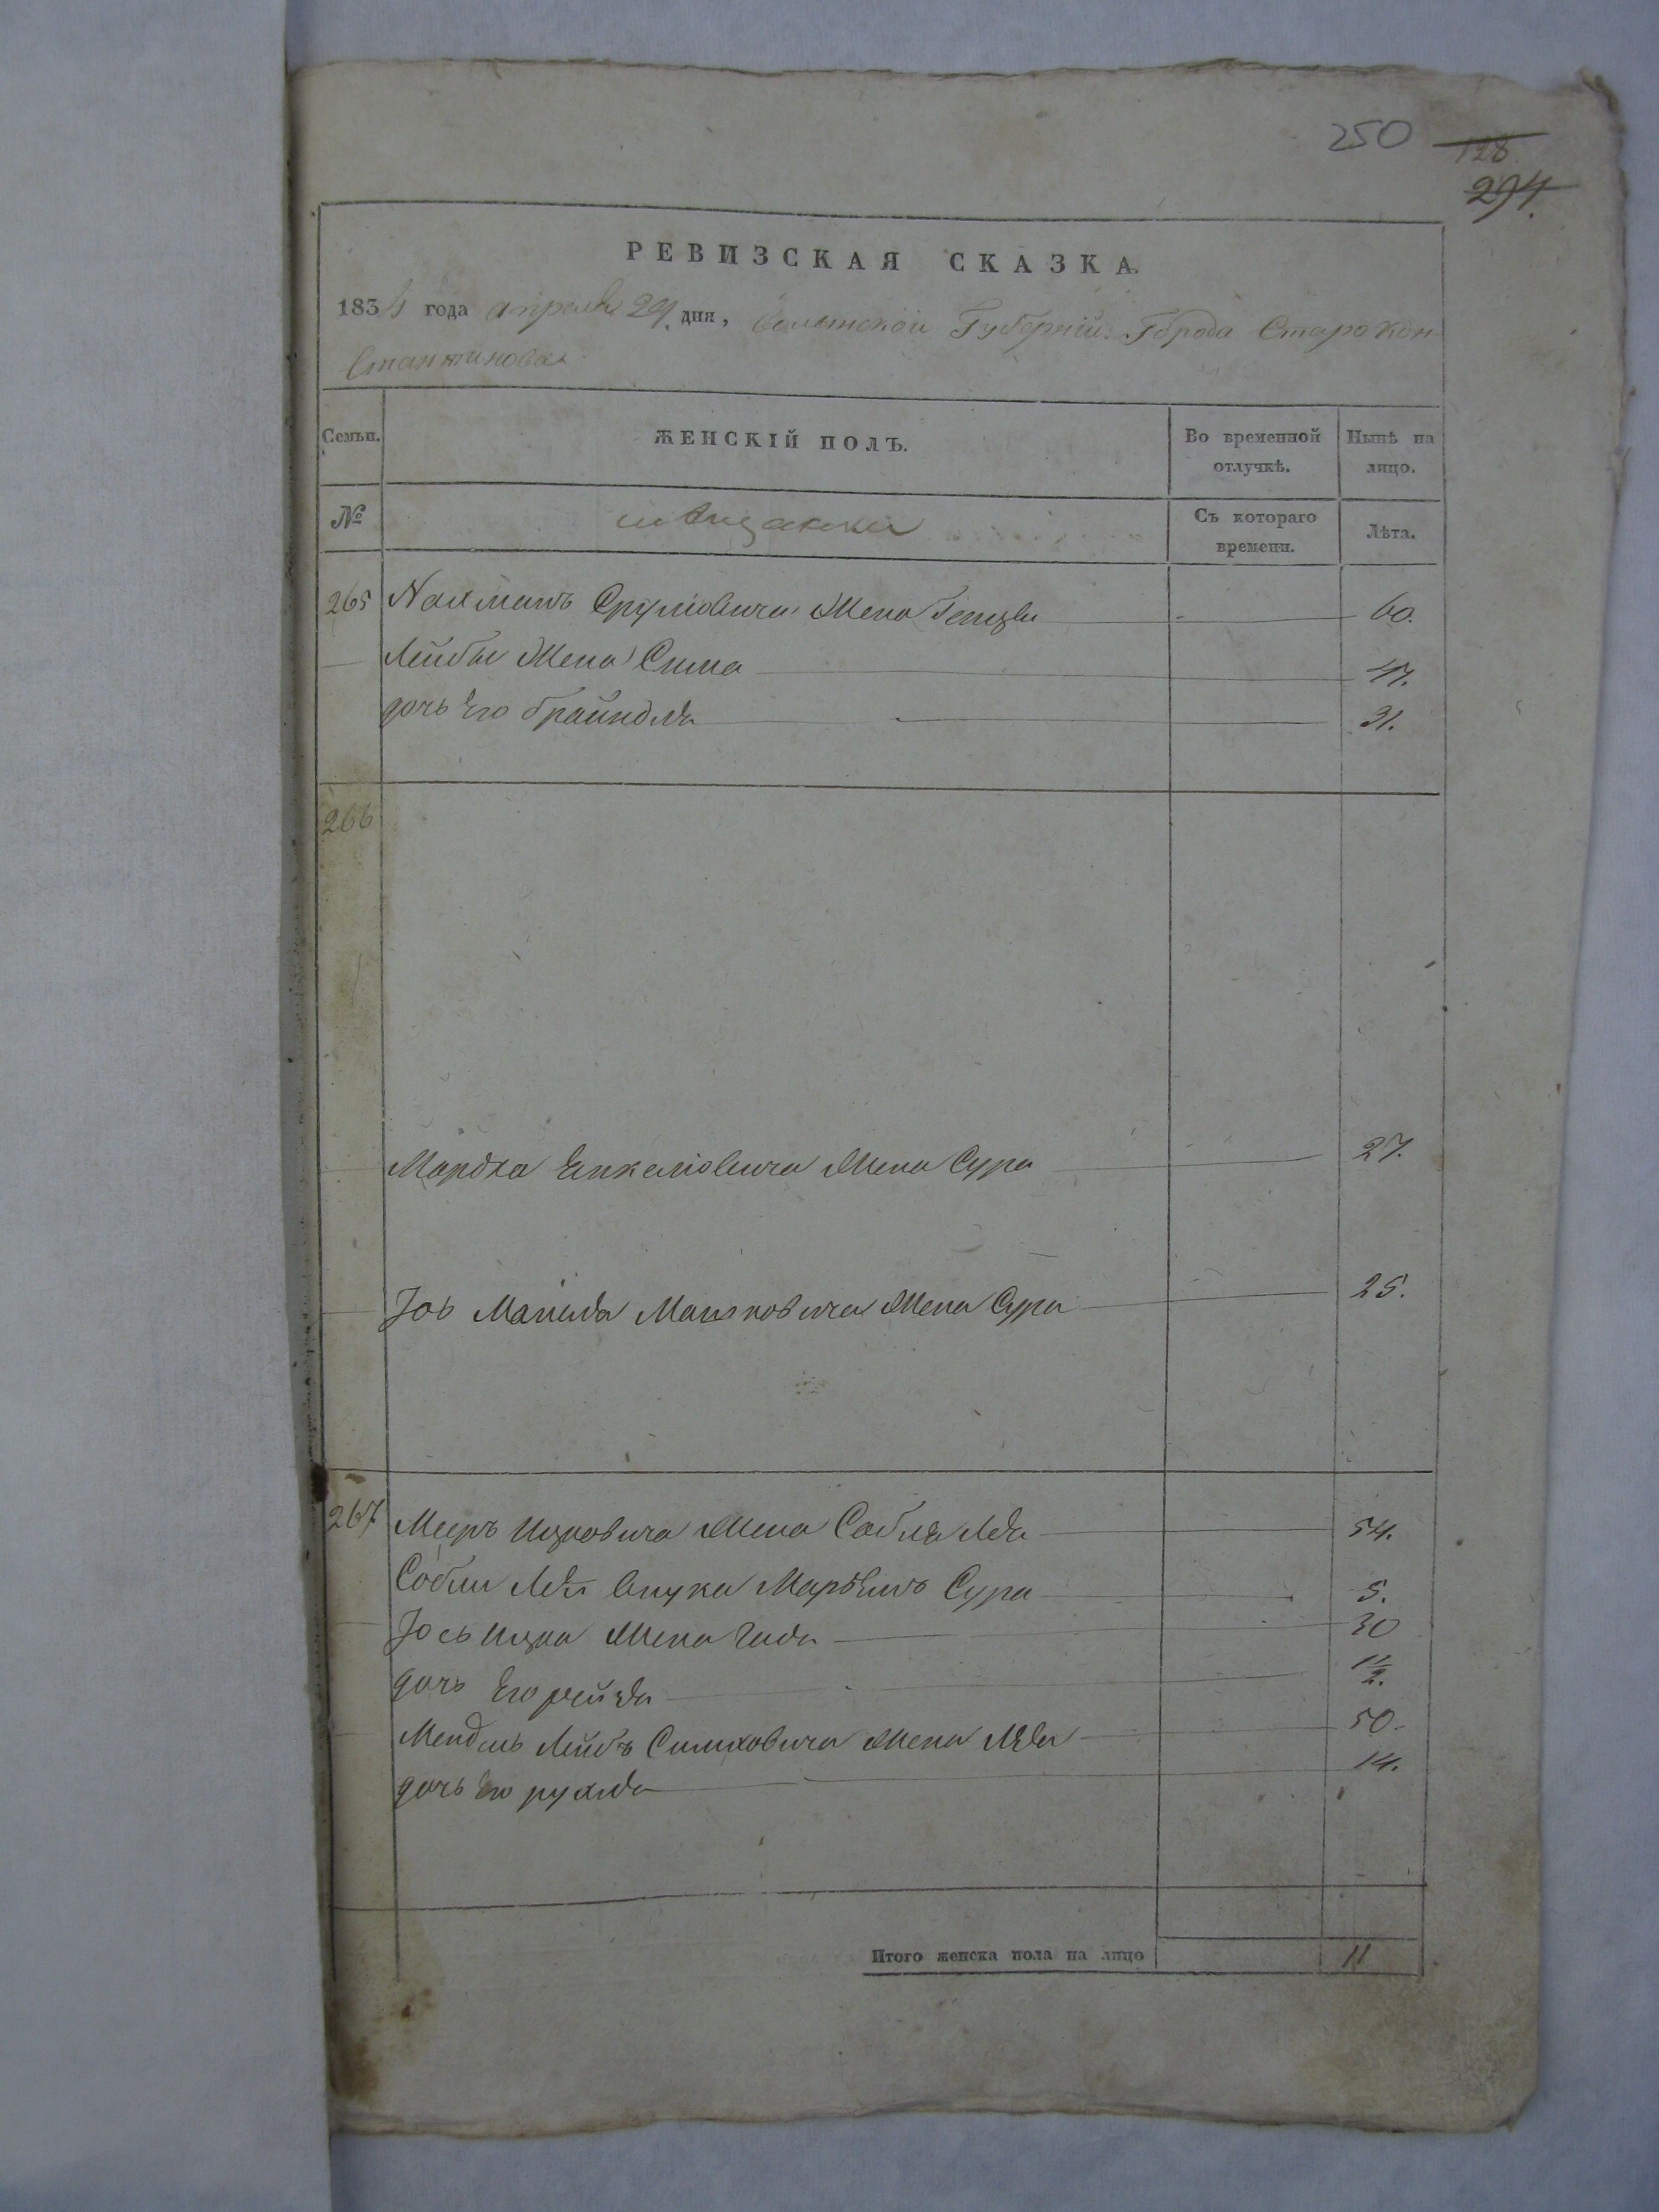 250
128
294.
РЕВИЗСКАЯ СКАЗКА.
1834 года апреля 29 дня, Волынской Губернии Города Старокон-
стантинова
Семьи. ЖЕНСКІЙ ПОЛЪ. Во временной отлучкѣ. Нынѣ на лицо.
№ мещанки Съ котораго времени. Лѣта.
265 Нахмана Срулiовича Жена 60.
Лейбы Жена Сима 47.
дочь Его Брайндля 31.
266
Мордха Янкелiовича Жена Сура 27.
Жена Сура 25.
267 Меера Ицковича Жена 54.
внука Сура 5.
Iось Ицка Жена 30
дочь Его рейзя 1 1/2.
Мендель Лейбъ Симховича Жена 50.
дочь Его рухля 14.
Итого женска пола на лицо 11